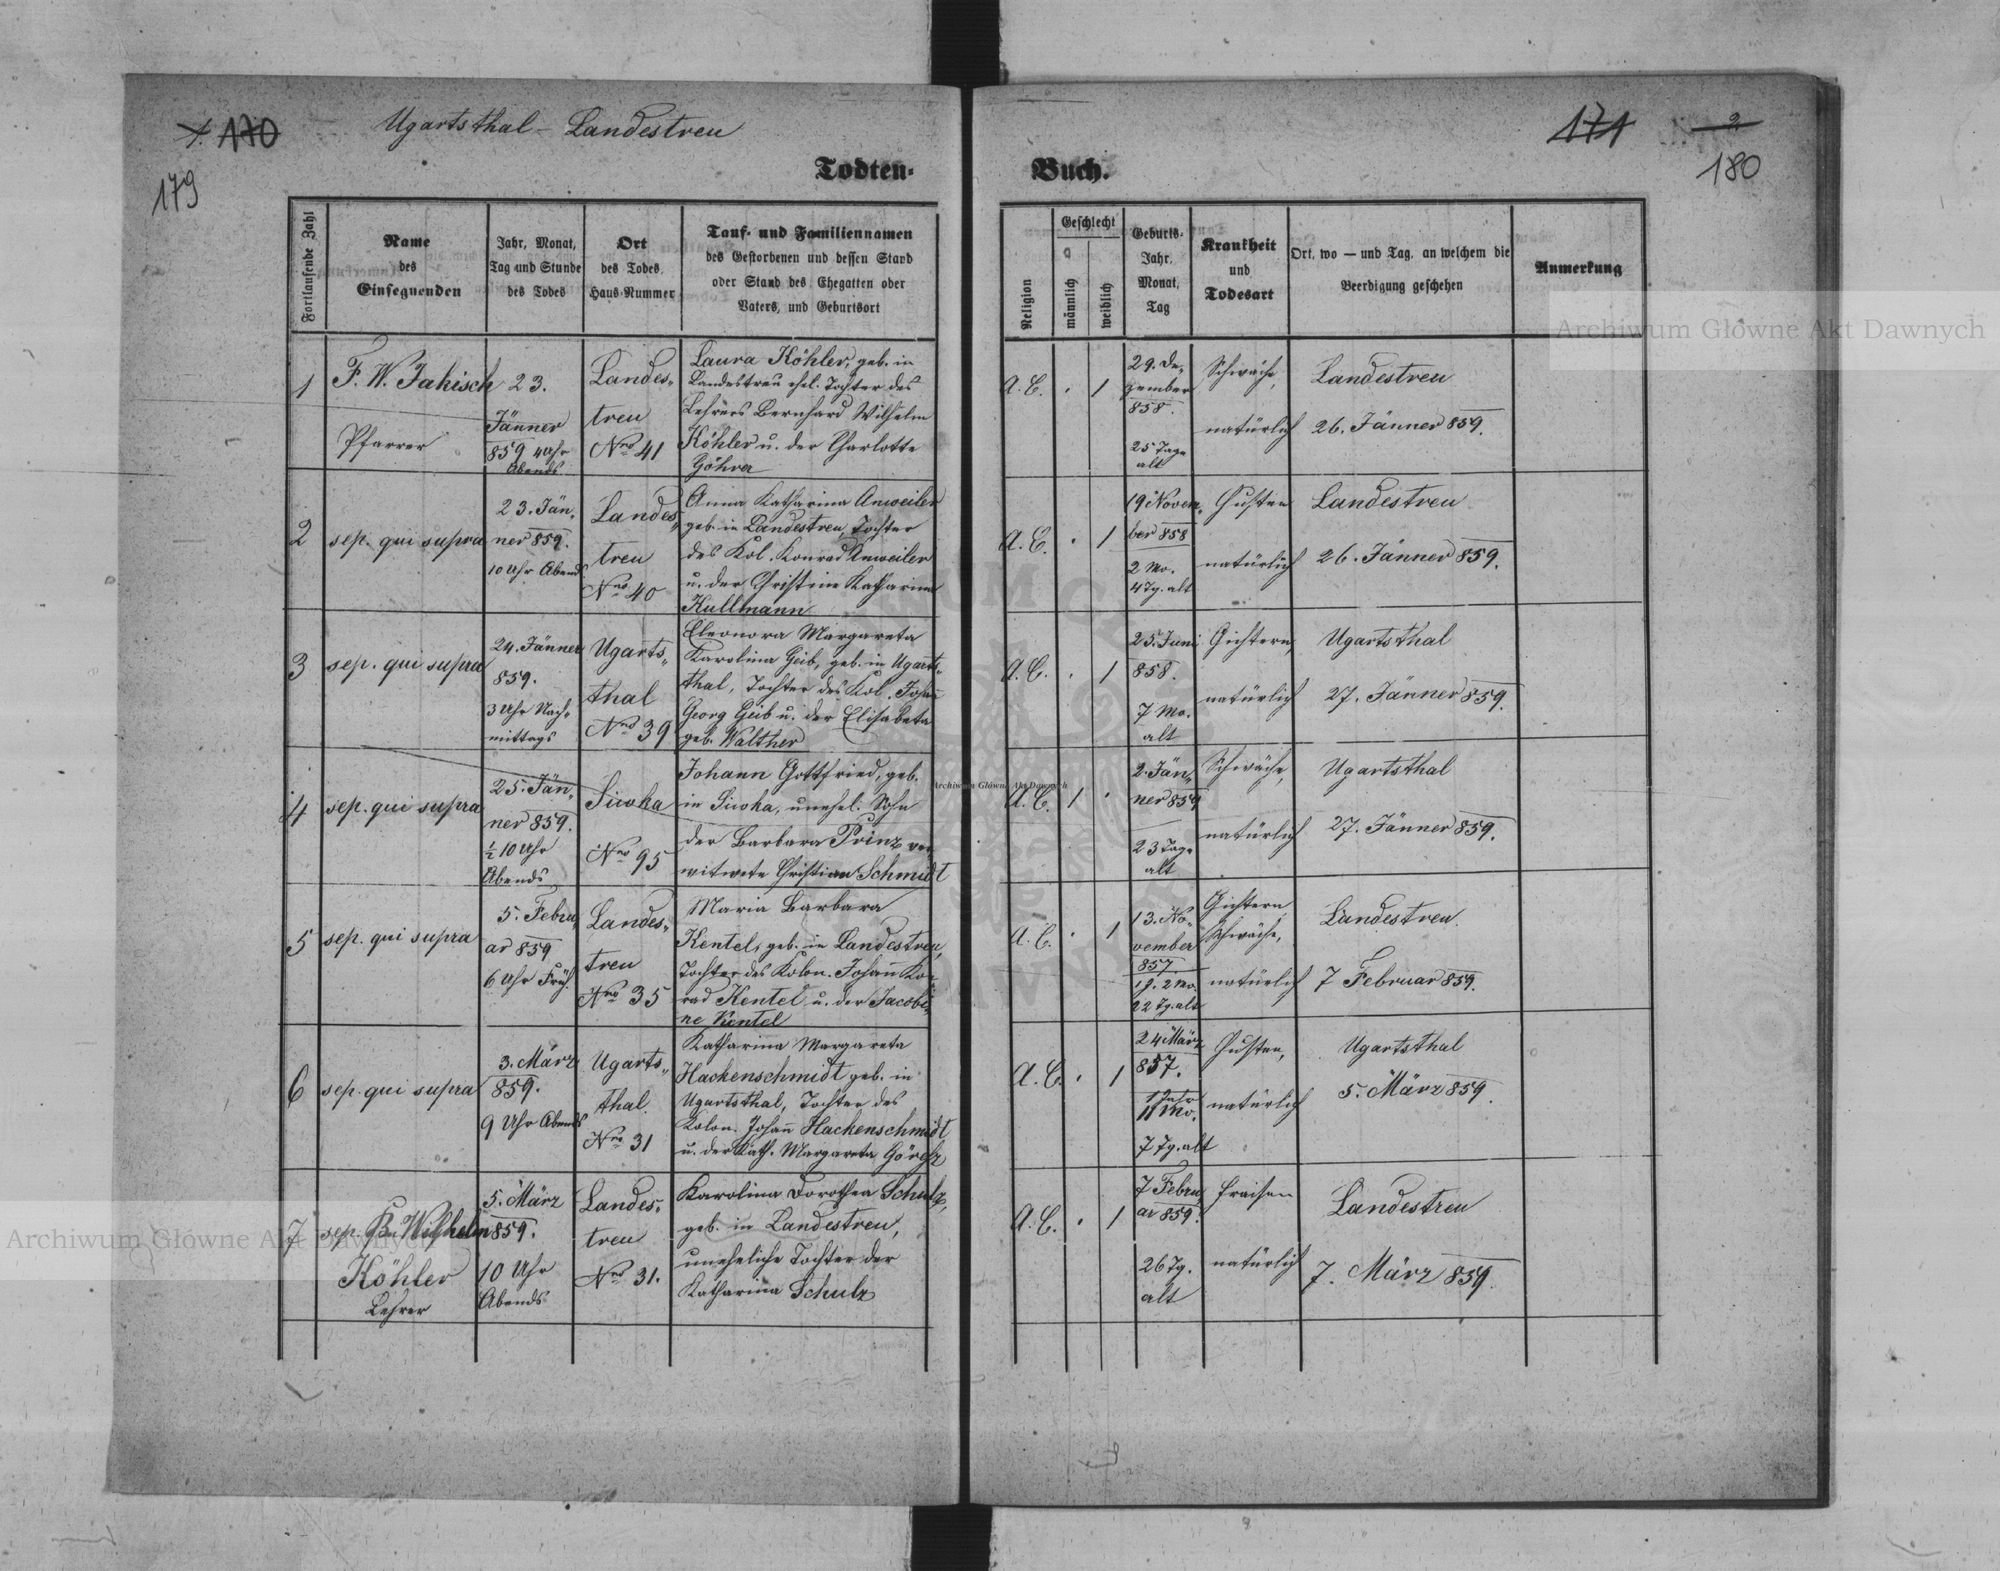 170
179
Ugartsthal - Landestreu
Todten-
Fortlaufende Zahl
Name
des
Einsegnenden
Jahr, Monat,
Tag und Stunde
des Todes
Ort
des Todes,
Haus-Nummer
Tauf- und Familiennamen
des Gestorbenen und dessen Stand
oder Stand des Ehegatten oder
Vaters, und Geburtsort
1
F. W. Jahisch
Pfarrer
23.
Jänner
859 4 Uhr
Abends
Landes-
treu
Nro 41
Laura Köhler, geb. in
Landestreu ehel. Tochter des
Lehrers Bernhard Wilhelm
Köhler u. der Charlotte
Göhrer
2
sep. qui supra
23. Jän-
ner 859.
10 Uhr Abend
Landes-
treu
Nro 40
Anna Katharina Anweiler
geb. in Landestreu, Tochter
des Kol. Konrad Anweiler
u. der Christine Katharina
Kullmann
3
sep. qui supra
24. Jänner
859.
3 Uhr Nach-
mittags
Ugarts-
thal
Nro 39
Eleonora Margareta
Karolina Geib, geb. in Ugarts-
thal, Tochter des Kol. Johan̄
Georg Geib u. der Elisabeta
geb. Walther
4
sep. qui supra
25. Jän-
ner 859.
½ 10 Uhr
Abends
Siwka
Nro 95
Johann Gottfried, geb.
in Siwka, unehel. Sohn
der Barbara Prinz ver-
witwete Christian Schmidt
5
sep. qui supra
5. Febru-
ar 859
6 Uhr Früh.
Landes-
treu
Nro 35
Maria Barbara
Kentel, geb. in Landestreu,
Tochter des Kolon. Johan̄ Kon-
rad Kentel u. der Jacobi-
ne Kentel
6
sep. qui supra
3. März
859.
9 Uhr Abends
Ugarts-
thal.
Nro 31
Katharina Margareta
Hackenschmidt geb. in
Ugartsthal, Tochter des
Kolon. Johan̄ Hackenschmidt
u. der Kath. Margareta Görchz
7
sep. Bn Wilhelm
Köhler
Lehrer
5. März
859.
10 Uhr
Abends
Landes-
treu
Nro 31.
Karolina Dorothea Schulz,
geb. in Landestreu,
uneheliche Tochter der
Katharina Schulz
171
2
180
Buch.
Religion
Geschlecht
männlich
weiblich
Geburts-
Jahr,
Monat,
Tag
Krankheit
und
Todesart
Ort, wo — und Tag, an welchem die
Beerdigung geschehen
Anmerkung
A. C. 1
29. De-
zember
858.
25 Tage
alt
Schwäche,
natürlich
Landestreu
26. Jänner 859.
A. C. 1
19 Novem-
ber 858
2 Mo.
4 Tg. alt
Husten
natürlich
Landestreu
26. Jänner 859.
A. C. 1
25. Juni
858.
7 Mo.
alt
Gichtern,
natürlich
Ugartsthal
27. Jänner 859.
A. C. 1
2. Jän-
ner 859
23 Tage
alt
Schwäche,
natürlich
Ugartsthal
27. Jänner 859.
A. C. 1
13. No-
vember
857.
1 J. 2 Mo.
22 Tg. alt
Gichtern
Schwäche,
natürlich
Landestreu.
7 Februar 859.
A. C. 1
24 März
857.
1 Jahr
11 Mo.
7 Tg. alt
Husten,
natürlich
Ugartsthal
5. März 859.
A. C. 1
7 Febru-
ar 859.
26 Tg.
alt
Fraisen
natürlich
Landestreu
7. März 859.
Archiwum Główne Akt Dawnych
Archiwum Główne Akt Dawnych
Archiwum Główne Akt Dawnych